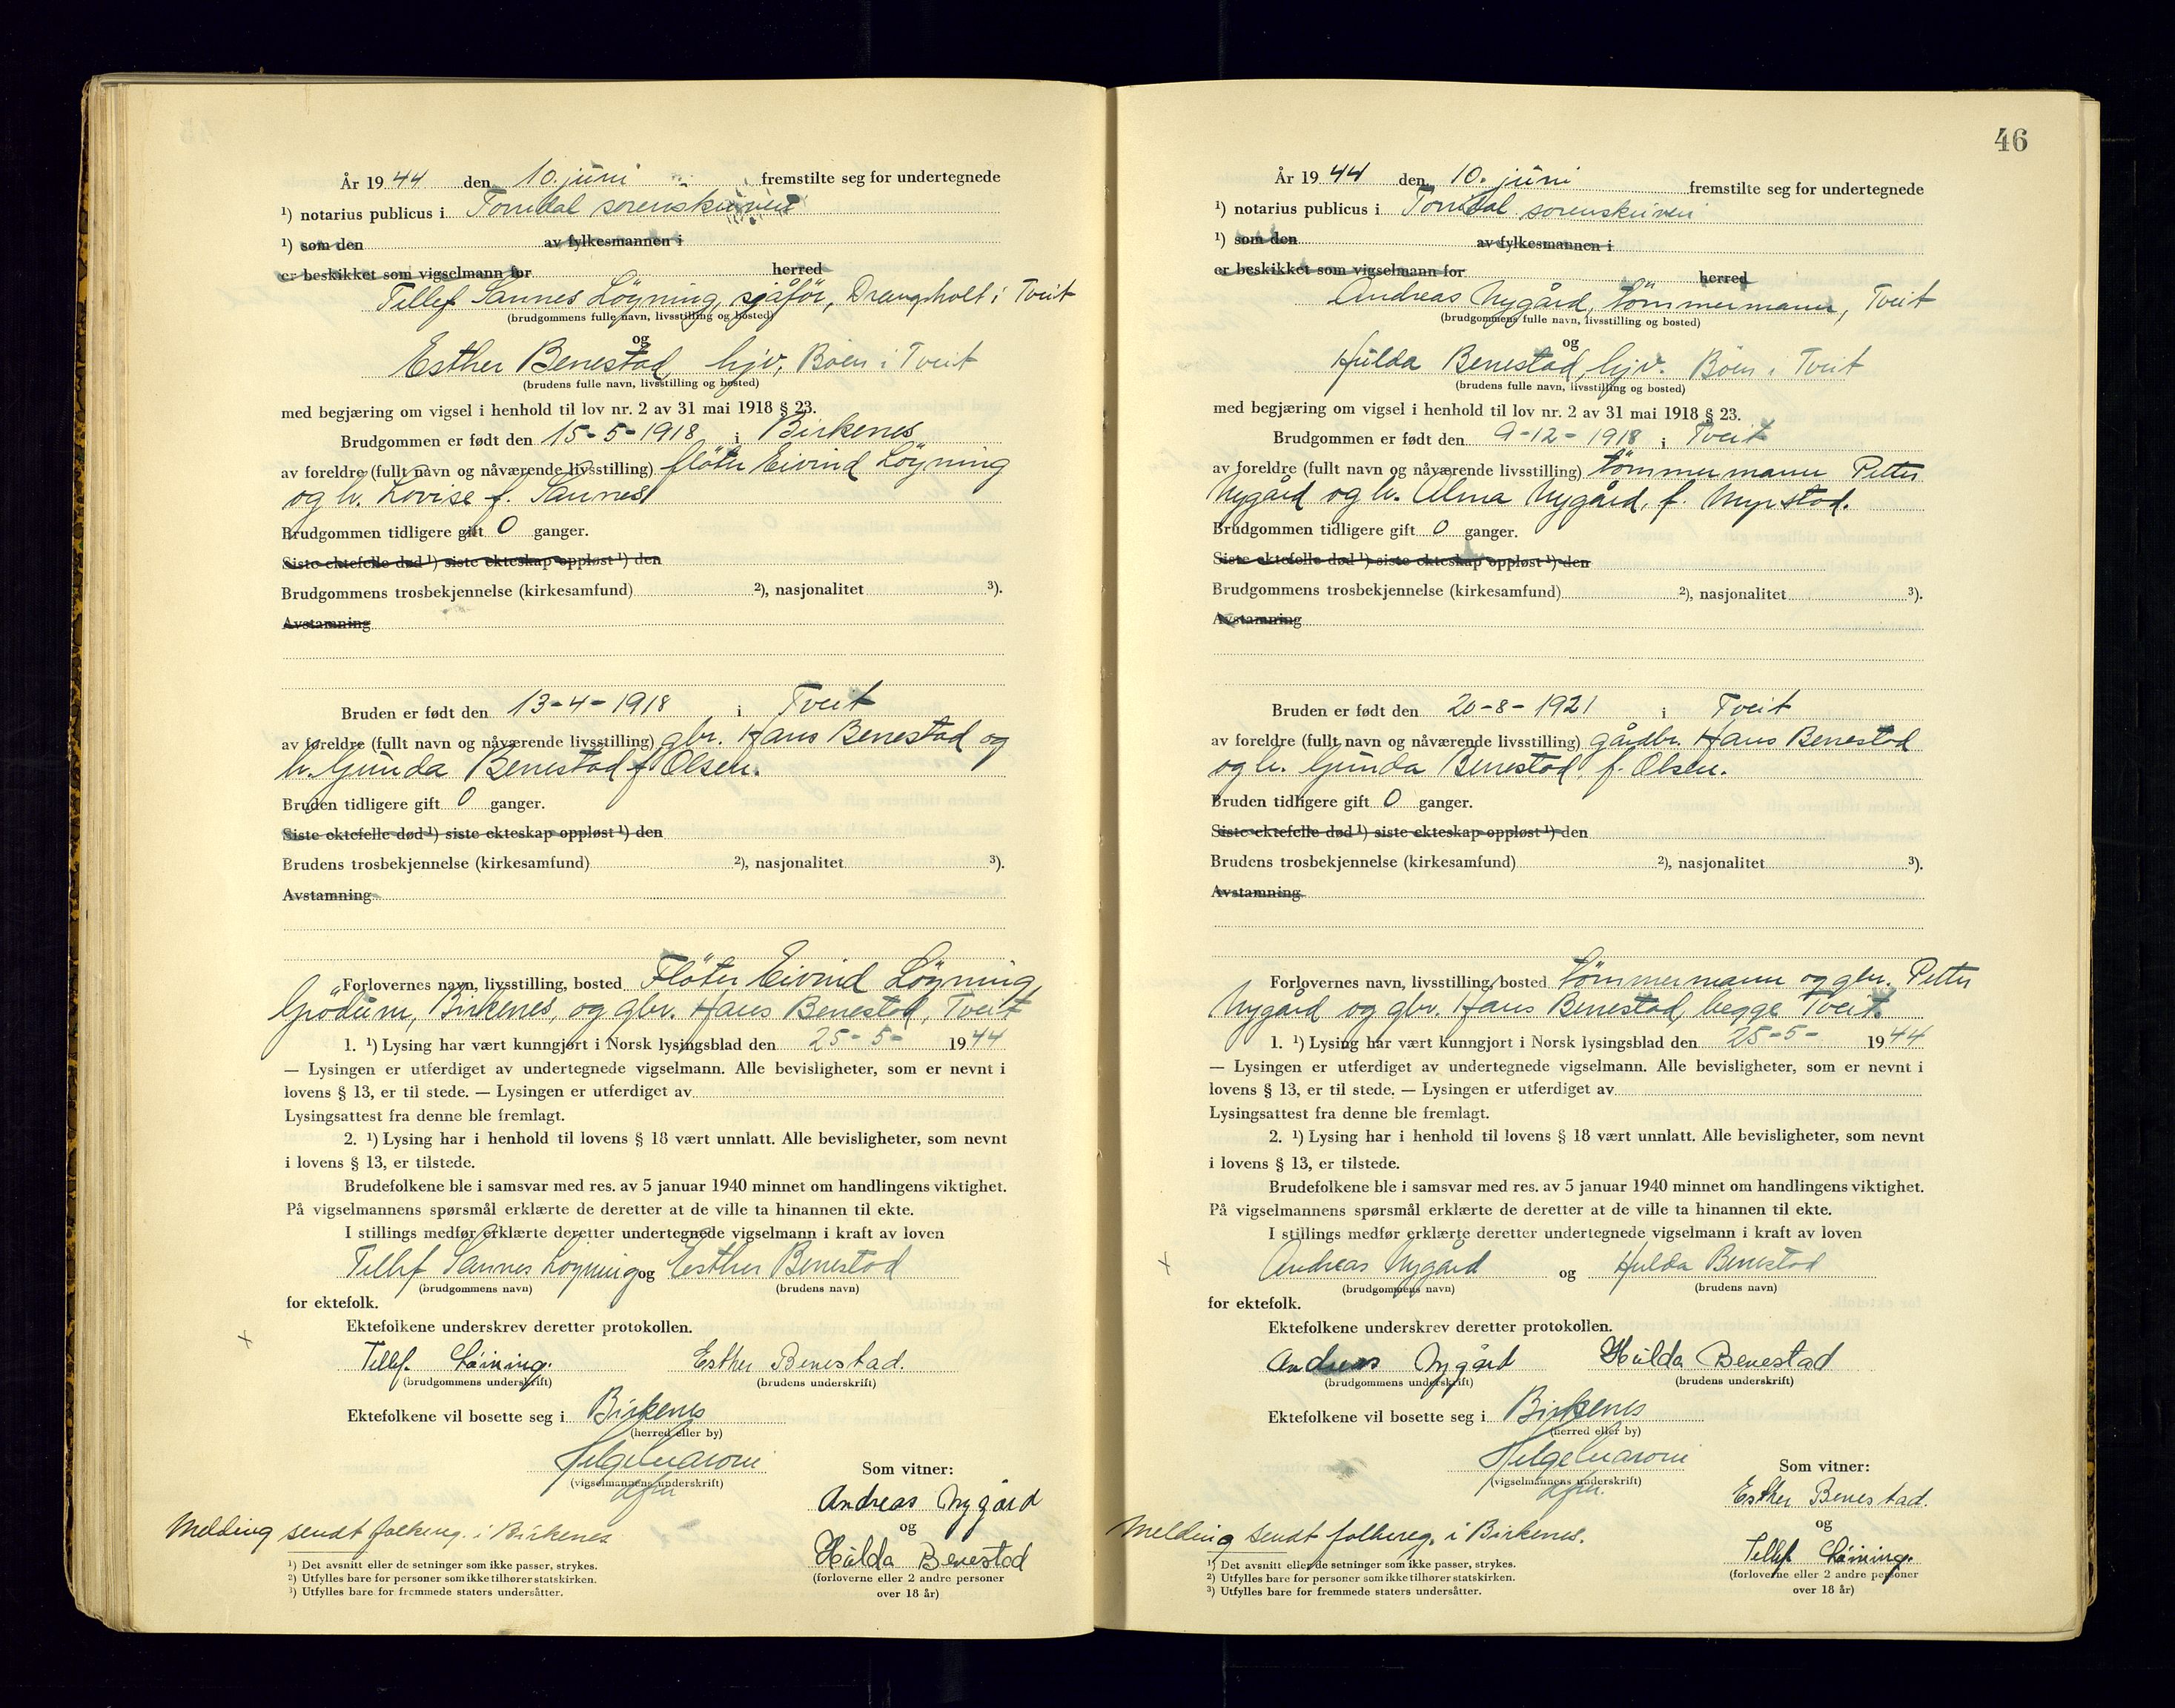 År 19 44 den 10. juni fremstilte seg for undertegnede
¹) notarius publicus i Torridal sorenskriveri
¹) som den av fylkesmannen i
er beskikket som vigselmann for herred
Tellef Sannes Löyning, sjåför, Drangsholt i Tveit
(brudgommens fulle navn, livsstilling og bosted)
og
Esther Benestad, hjv, Boen i Tveit
(brudens fulle navn, livsstilling og bosted)
med begjæring om vigsel i henhold til lov nr. 2 av 31 mai 1918 § 23.
Brudgommen er født den 15-5-1918 i Birkenes
av foreldre (fullt navn og nåværende livsstilling) flöter Eivind Löyning
og h. Lovise f. Sannes
Brudgommen tidligere gift 0 ganger.
Siste ektefelle død ¹) siste ekteskap oppløst ¹) den
Brudgommens trosbekjennelse (kirkesamfund) ²), nasjonalitet ³).
Avstamning
Bruden er født den 13-4-1918 i Tveit
av foreldre (fullt navn og nåværende livsstilling) gbr. Hans Benestad og
h. Gunda Benestad f. Olsen.
Bruden tidligere gift 0 ganger.
Siste ektefelle død ¹) siste ekteskap oppløst ¹) den
Brudens trosbekjennelse (kirkesamfund) ²), nasjonalitet ³).
Avstamning
Forlovernes navn, livsstilling, bosted Flöter Eivind Löyning,
Grödum, Birkenes, og gbr. Hans Benestad, Tveit
1. ¹) Lysing har vært kunngjort i Norsk lysingsblad den 25-5- 19 44
— Lysingen er utferdiget av undertegnede vigselmann. Alle bevisligheter, som er nevnt i
lovens § 13, er til stede. — Lysingen er utferdiget av
Lysingsattest fra denne ble fremlagt.
2. ¹) Lysing har i henhold til lovens § 18 vært unnlatt. Alle bevisligheter, som nevnt
i lovens § 13, er tilstede.
Brudefolkene ble i samsvar med res. av 5 januar 1940 minnet om handlingens viktighet.
På vigselmannens spørsmål erklærte de deretter at de ville ta hinannen til ekte.
I stillings medfør erklærte deretter undertegnede vigselmann i kraft av loven
Tellef Sannes Löyning og Esther Benestad
(brudgommens navn) (brudens navn)
for ektefolk.
Ektefolkene underskrev deretter protokollen.
Tellef Löining. Esther Benestad.
(brudgommens underskrift) (brudens underskrift)
Ektefolkene vil bosette seg i Birkenes
(herred eller by)
(vigselmannens underskrift)
Som vitner:
Andreas Nygård
og
Hulda Benestad
(forloverne eller 2 andre personer
over 18 år)
Melding sendt folkereg. i Birkenes
¹) Det avsnitt eller de setninger som ikke passer, strykes.
²) Utfylles bare for personer som ikke tilhører statskirken.
³) Utfylles bare for fremmede staters undersåtter.
46
År 19 44 den 10. juni fremstilte seg for undertegnede
¹) notarius publicus i Torridal sorenskriveri
¹) som den av fylkesmannen i
er beskikket som vigselmann for herred
Andreas Nygård, tömmermann, Tveit
(brudgommens fulle navn, livsstilling og bosted)
og
Hulda Benestad, hjv. Boen i Tveit
(brudens fulle navn, livsstilling og bosted)
med begjæring om vigsel i henhold til lov nr. 2 av 31 mai 1918 § 23.
Brudgommen er født den 9-12-1918 i Tveit
av foreldre (fullt navn og nåværende livsstilling) tömmermann Petter
Nygård og h. Alma Nygård, f. Myrstad.
Brudgommen tidligere gift 0 ganger.
Siste ektefelle død ¹) siste ekteskap oppløst ¹) den
Brudgommens trosbekjennelse (kirkesamfund) ²), nasjonalitet ³).
Avstamning
Bruden er født den 20-8-1921 i Tveit
av foreldre (fullt navn og nåværende livsstilling) gårdbr. Hans Benestad
og h. Gunda Benestad, f. Olsen.
Bruden tidligere gift 0 ganger.
Siste ektefelle død ¹) siste ekteskap oppløst ¹) den
Brudens trosbekjennelse (kirkesamfund) ²), nasjonalitet ³).
Avstamning
Forlovernes navn, livsstilling, bosted tömmermann og gbr. Petter
Nygård og gbr. Hans Benestad, begge Tveit.
1. ¹) Lysing har vært kunngjort i Norsk lysingsblad den 25-5- 19 44
— Lysingen er utferdiget av undertegnede vigselmann. Alle bevisligheter, som er nevnt i
lovens § 13, er til stede. — Lysingen er utferdiget av
Lysingsattest fra denne ble fremlagt.
2. ¹) Lysing har i henhold til lovens § 18 vært unnlatt. Alle bevisligheter, som nevnt
i lovens § 13, er tilstede.
Brudefolkene ble i samsvar med res. av 5 januar 1940 minnet om handlingens viktighet.
På vigselmannens spørsmål erklærte de deretter at de ville ta hinannen til ekte.
I stillings medfør erklærte deretter undertegnede vigselmann i kraft av loven
Andreas Nygård og Hulda Benestad
(brudgommens navn) (brudens navn)
for ektefolk.
Ektefolkene underskrev deretter protokollen.
Andreas Nygård Hulda Benestad
(brudgommens underskrift) (brudens underskrift)
Ektefolkene vil bosette seg i Birkenes
(herred eller by)
(vigselmannens underskrift)
Som vitner:
Esther Benestad.
og
Tellef Löining.
(forloverne eller 2 andre personer
over 18 år)
Melding sendt folkereg. i Birkenes.
¹) Det avsnitt eller de setninger som ikke passer, strykes.
²) Utfylles bare for personer som ikke tilhører statskirken.
³) Utfylles bare for fremmede staters undersåtter.